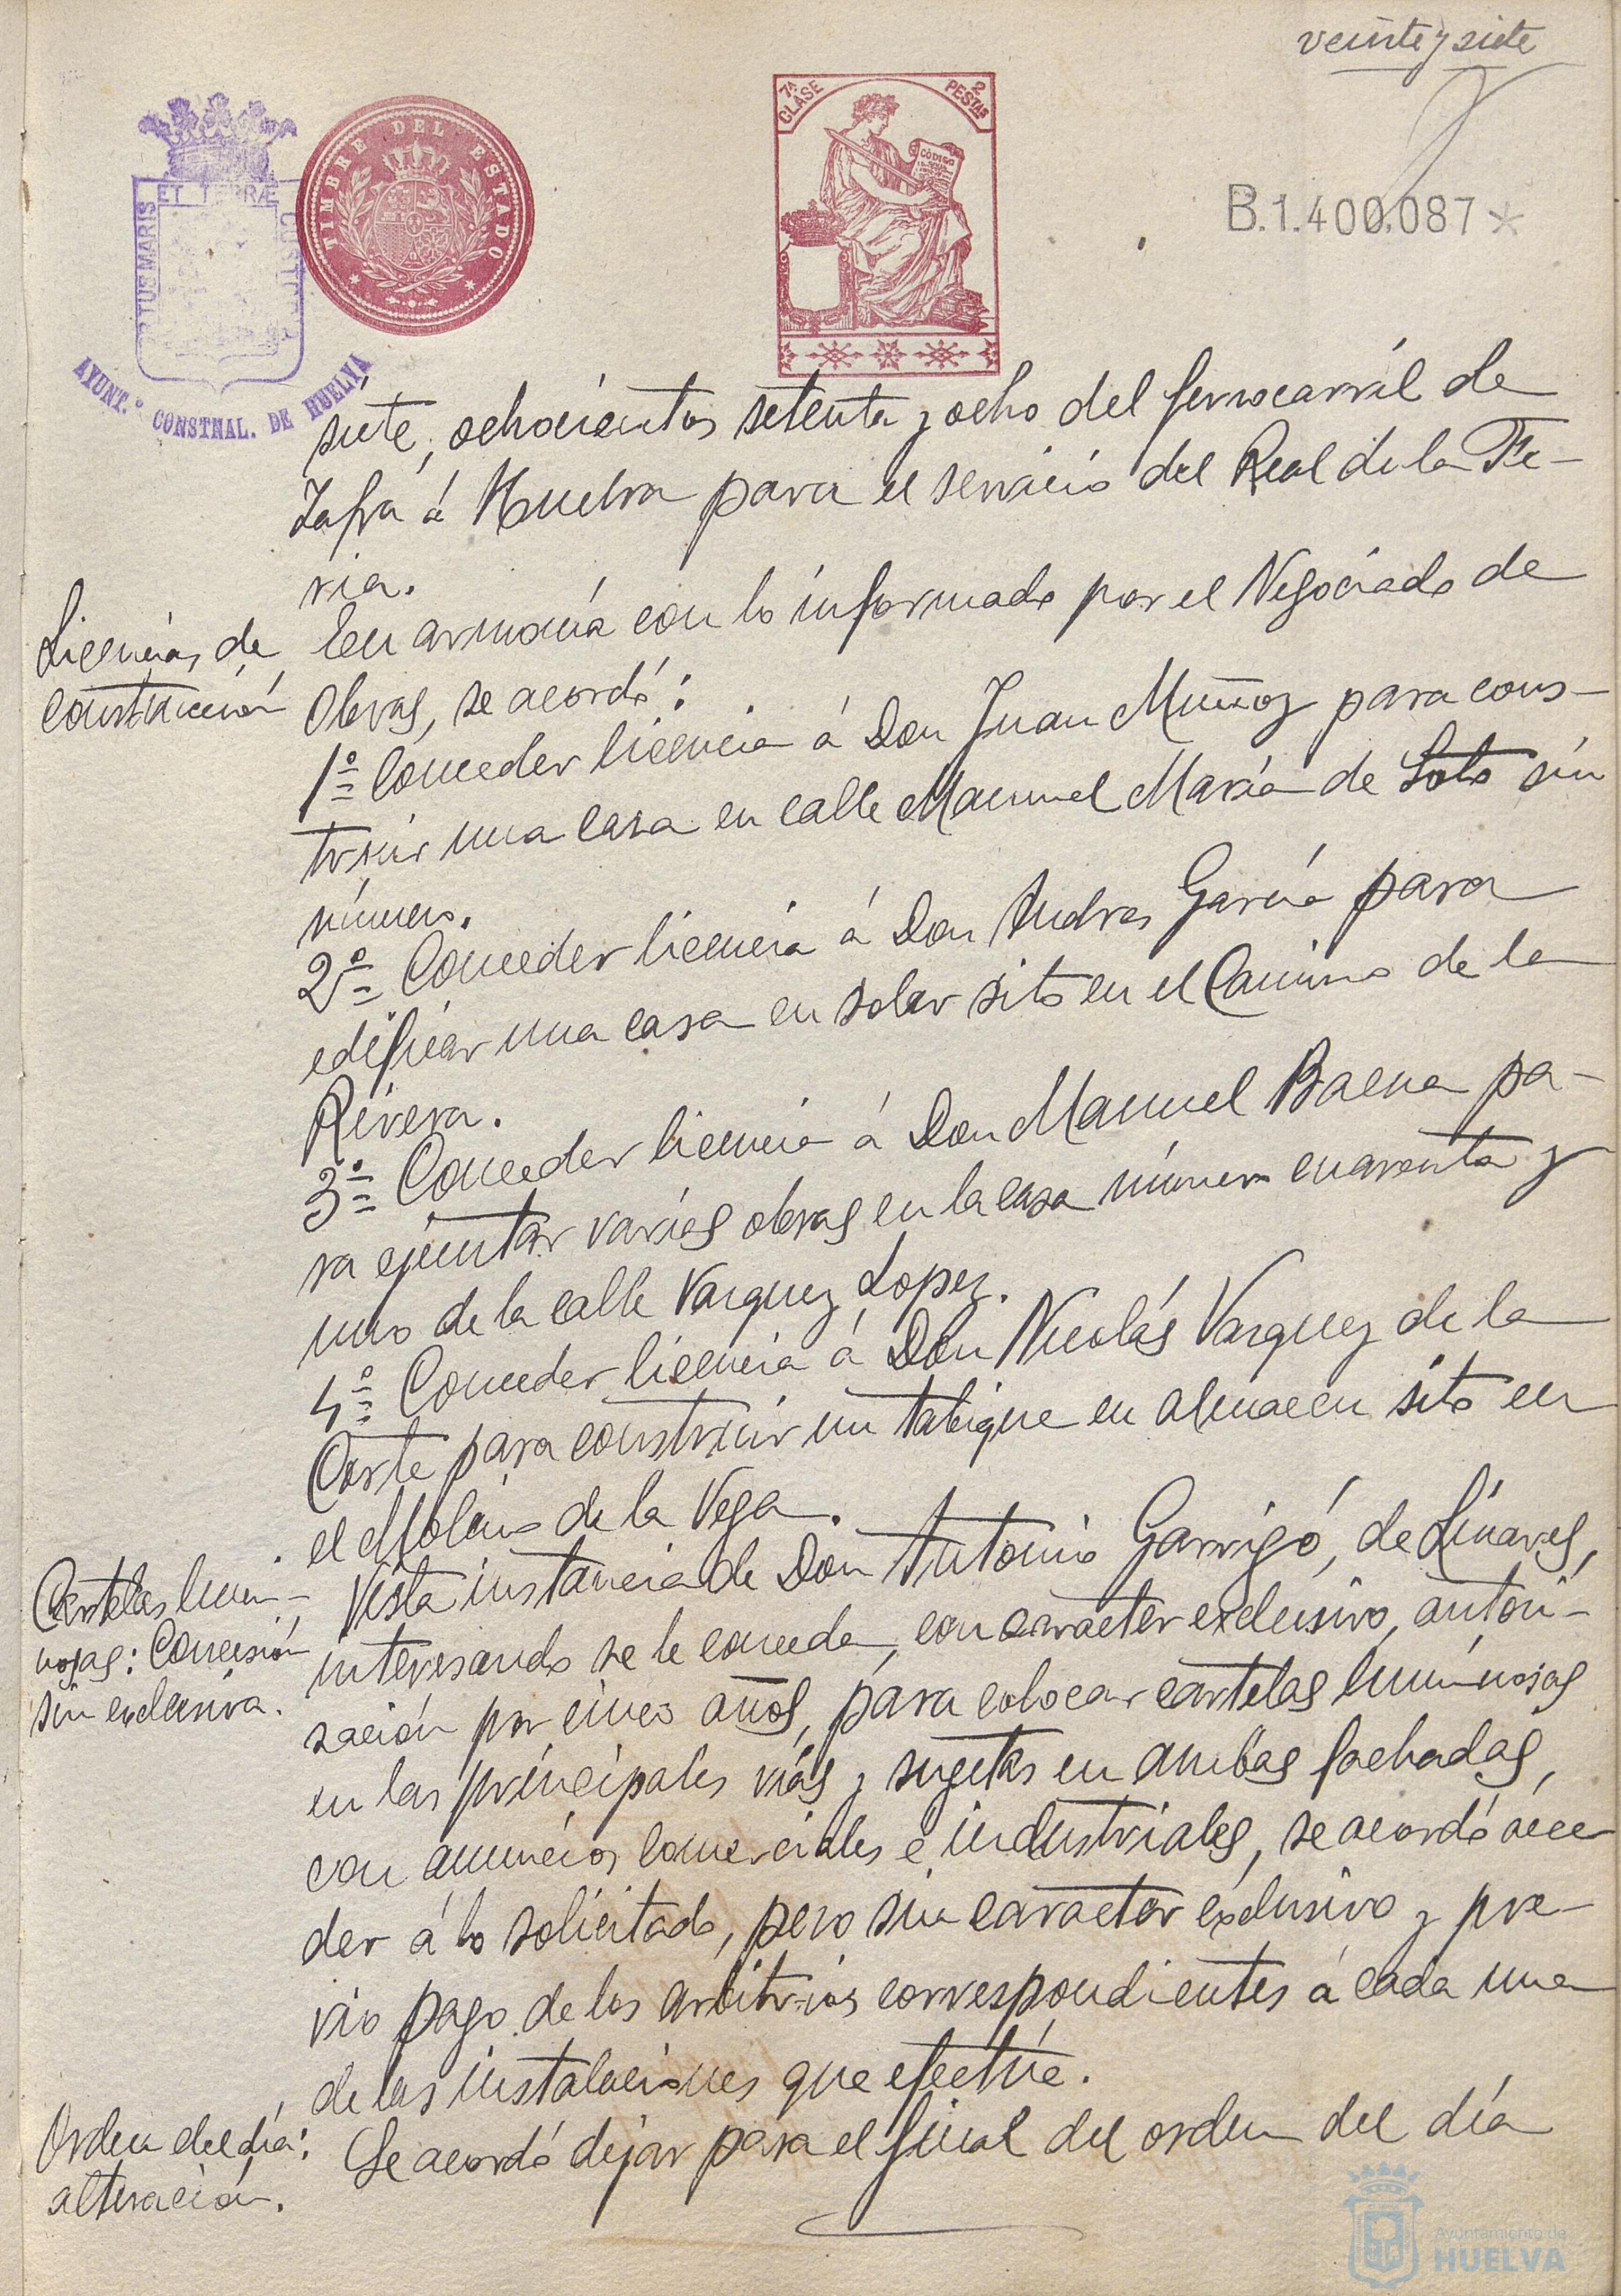 veinte y siete
7ª CLASE
2 PESTAS
CÓDIGO
TIMBRE DEL ESTADO
B.1.400.087 *
TUS MARIS ET TERRÆ CUSTO
AYUNT.º CONSTNAL. DE HUELVA
siete, ochocientos setenta y ocho del ferrocarril de
Zafra á Huelva para el servicio del Real de la Fe-
ria.
Licencias de
construcción
En armonía con lo informado por el Negociado de
Obras, se acordó:
1º Conceder licencia á Don Juan Muñoz para cons-
truir una casa en calle Manuel María de Soto sin
número.
2º Conceder licencia á Don Andres García para
edificar una casa en solar sito en el Camino de la
Rivera.
3º Conceder licencia á Don Manuel Baena pa-
ra ejecutar varias obras en la casa número cuarenta y
uno de la calle Vazquez Lopez.
4º Conceder licencia á Don Nicolás Vazquez de la
Corte para construir un tabique en almacen sito en
el Molino de la Vega.
Cartelas lumi-
nosas: Concesión
sin exclusiva.
Vista instancia de Don Antonio Garrigó, de Linares,
interesando se le conceda, con caracter exclusivo, autori-
zación por cinco años, para colocar cartelas luminosas
en las principales vías y sugetas en ambas fachadas,
con anuncios comerciales é industriales, se acordó acce
der á lo solicitado, pero sin caracter exclusivo y pre-
vio pago de los arbitrios correspondientes á cada una
de las instalaciones que efectúe.
Orden del día:
alteración.
Se acordó dejar para el final del orden del día
Ayuntamiento de
HUELVA